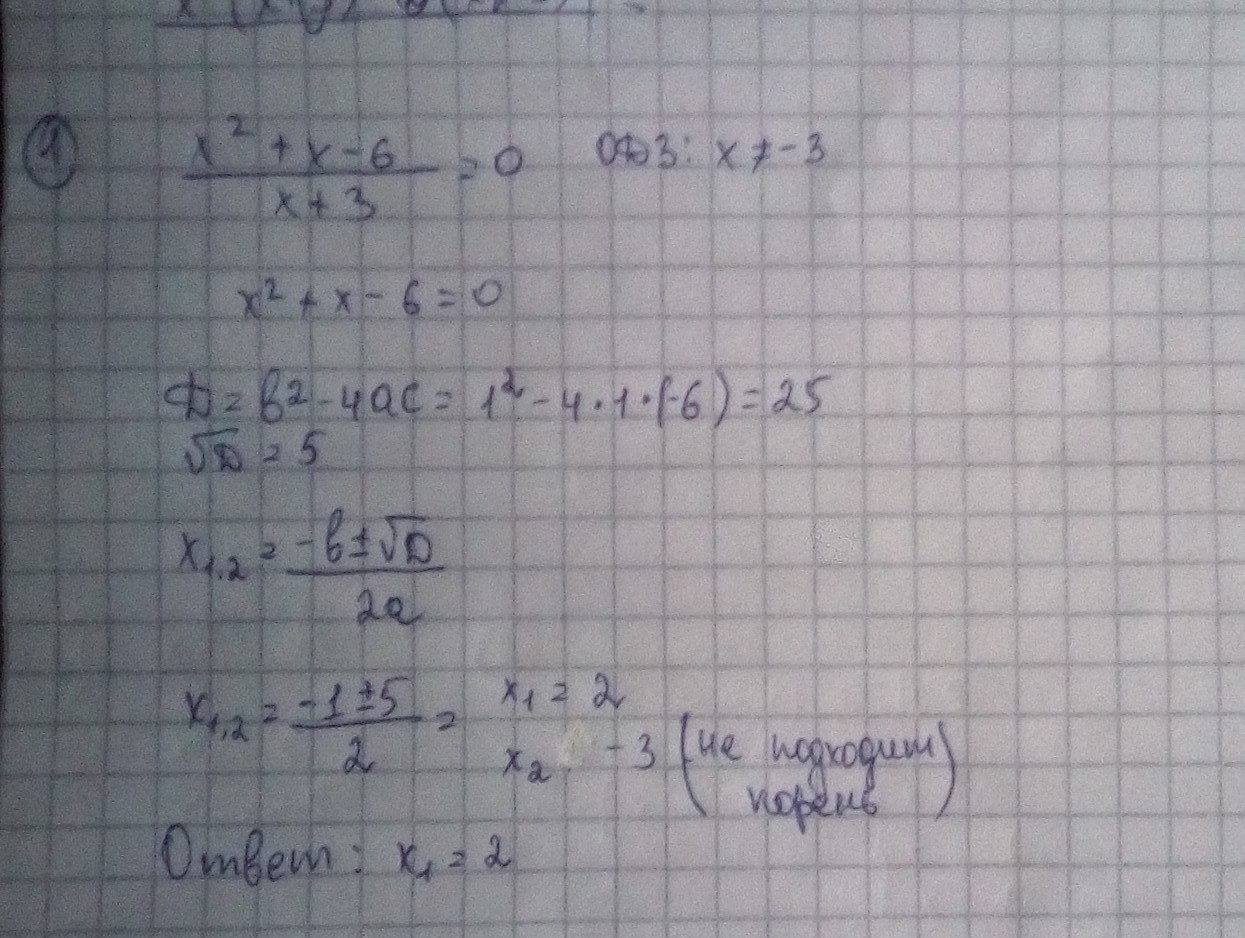 1
x² + x - 6 = 0 ОДЗ: x ≠ -3
x + 3
x² + x - 6 = 0
D = b² - 4ac = 1² - 4·1·(-6) = 25
√D = 5
x₁,₂ = -b ± √D
2a
x₁,₂ = -1 ± 5 = x₁ = 2
2 x₂ -3 (не подходит
корень)
Ответ: x₁ = 2